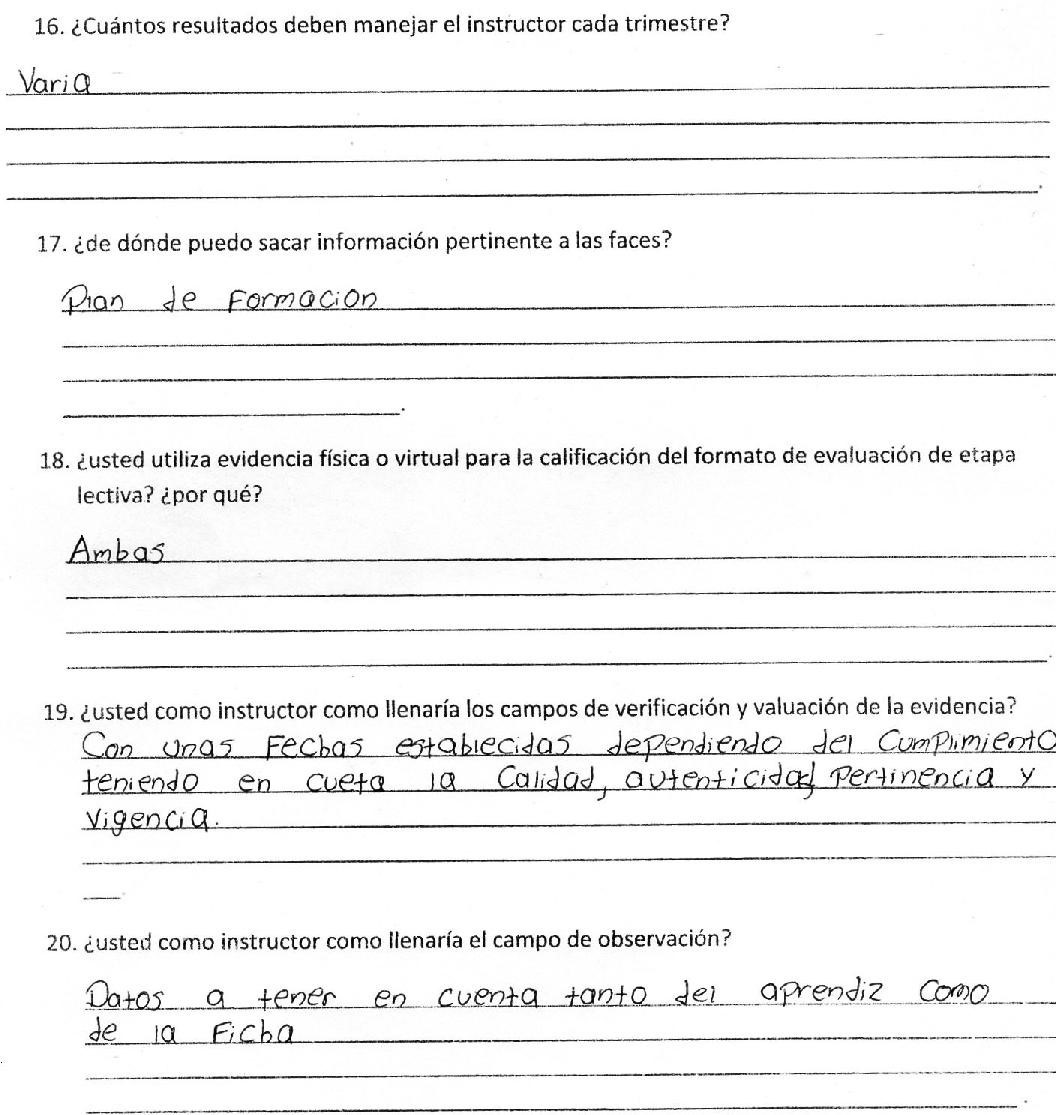 16. ¿Cuántos resultados deben manejar el instructor cada trimestre?
Varia
17. ¿de dónde puedo sacar información pertinente a las faces?
Plan de Formacion
18. ¿usted utiliza evidencia física o virtual para la calificación del formato de evaluación de etapa
lectiva? ¿por qué?
Ambas
19. ¿usted como instructor como llenaría los campos de verificación y valuación de la evidencia?
Con unas Fechas establecidas dependiendo del Cumplimiento
teniendo en cueta la Calidad, autenticidad, Pertinencia y
Vigencia.
20. ¿usted como instructor como llenaría el campo de observación?
Datos a tener en cuenta tanto del aprendiz como
de la Ficha